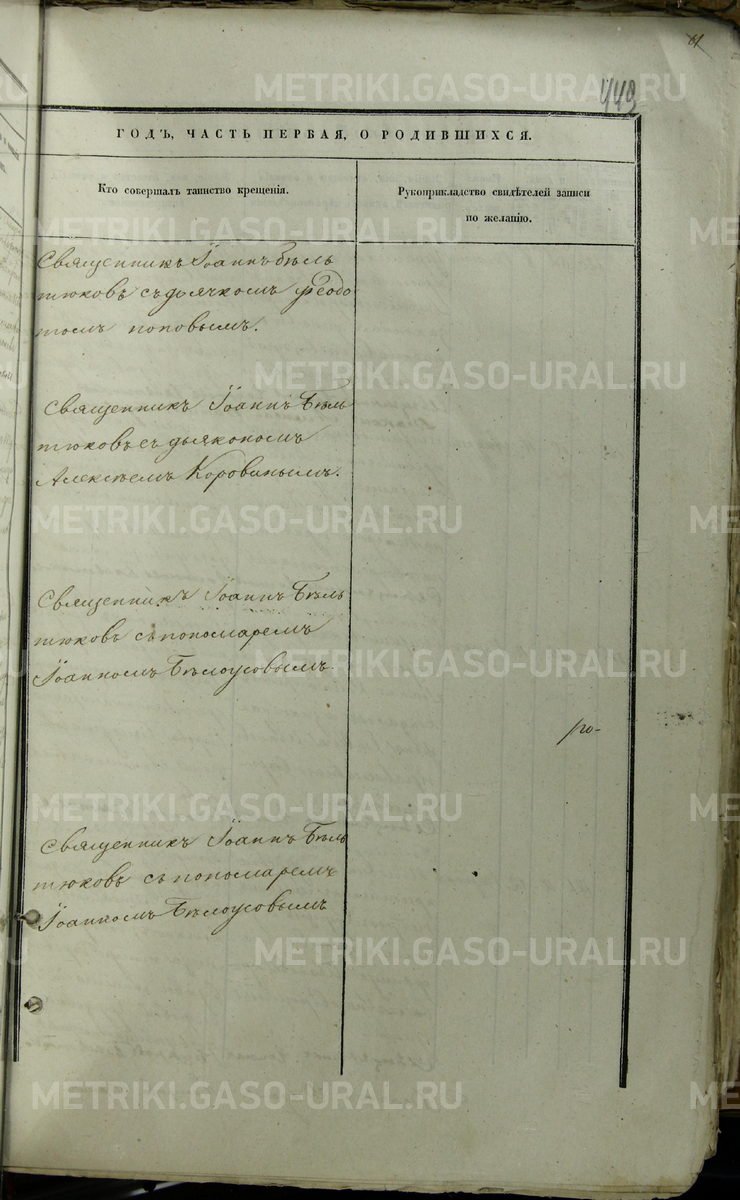 61
443
ГОДЪ, ЧАСТЬ ПЕРВАЯ, О РОДИВШИХСЯ.
Кто совершалъ таинство крещенія.
Рукоприкладство свидѣтелей записи
по желанію.
Священникъ Іоаннъ Бѣль
тюковъ съ дьячкомъ Ѳеодо
томъ поповымъ.
Священникъ Іоаннъ Бѣль
тюковъ съ дьякономъ
Алексѣемъ Коровинымъ.
Священникъ Іоаннъ Бѣль
тюковъ съ пономаремъ
Іоанномъ Бѣлоусовымъ
ро-
Священникъ Іоаннъ Бѣль
тюковъ съ пономаремъ
Іоанномъ Бѣлоусовымъ
METRIKI.GASO-URAL.RU
METRIKI.GASO-URAL.RU
METRIKI.GASO-URAL.RU
METRIKI.GASO-URAL.RU
METRIKI.GASO-URAL.RU
METRIKI.GASO-URAL.RU
METRIKI.GASO-URAL.RU
METRIKI.GASO-URAL.RU